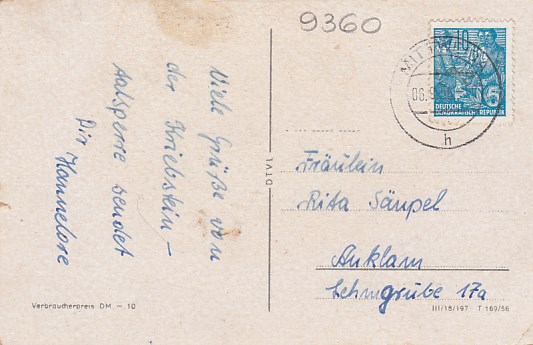 9360
10
DEUTSCHE
DEMOKRATISCHE REPUBLIK
h
Viele Grüße von
der Kriebstein-
talsperre sendet
Dir Hannelore
Fräulein
Rita Säupel
Anklam
Lehmgrube 17a
Verbraucherpreis DM - 10
III/18/197 T 169/56